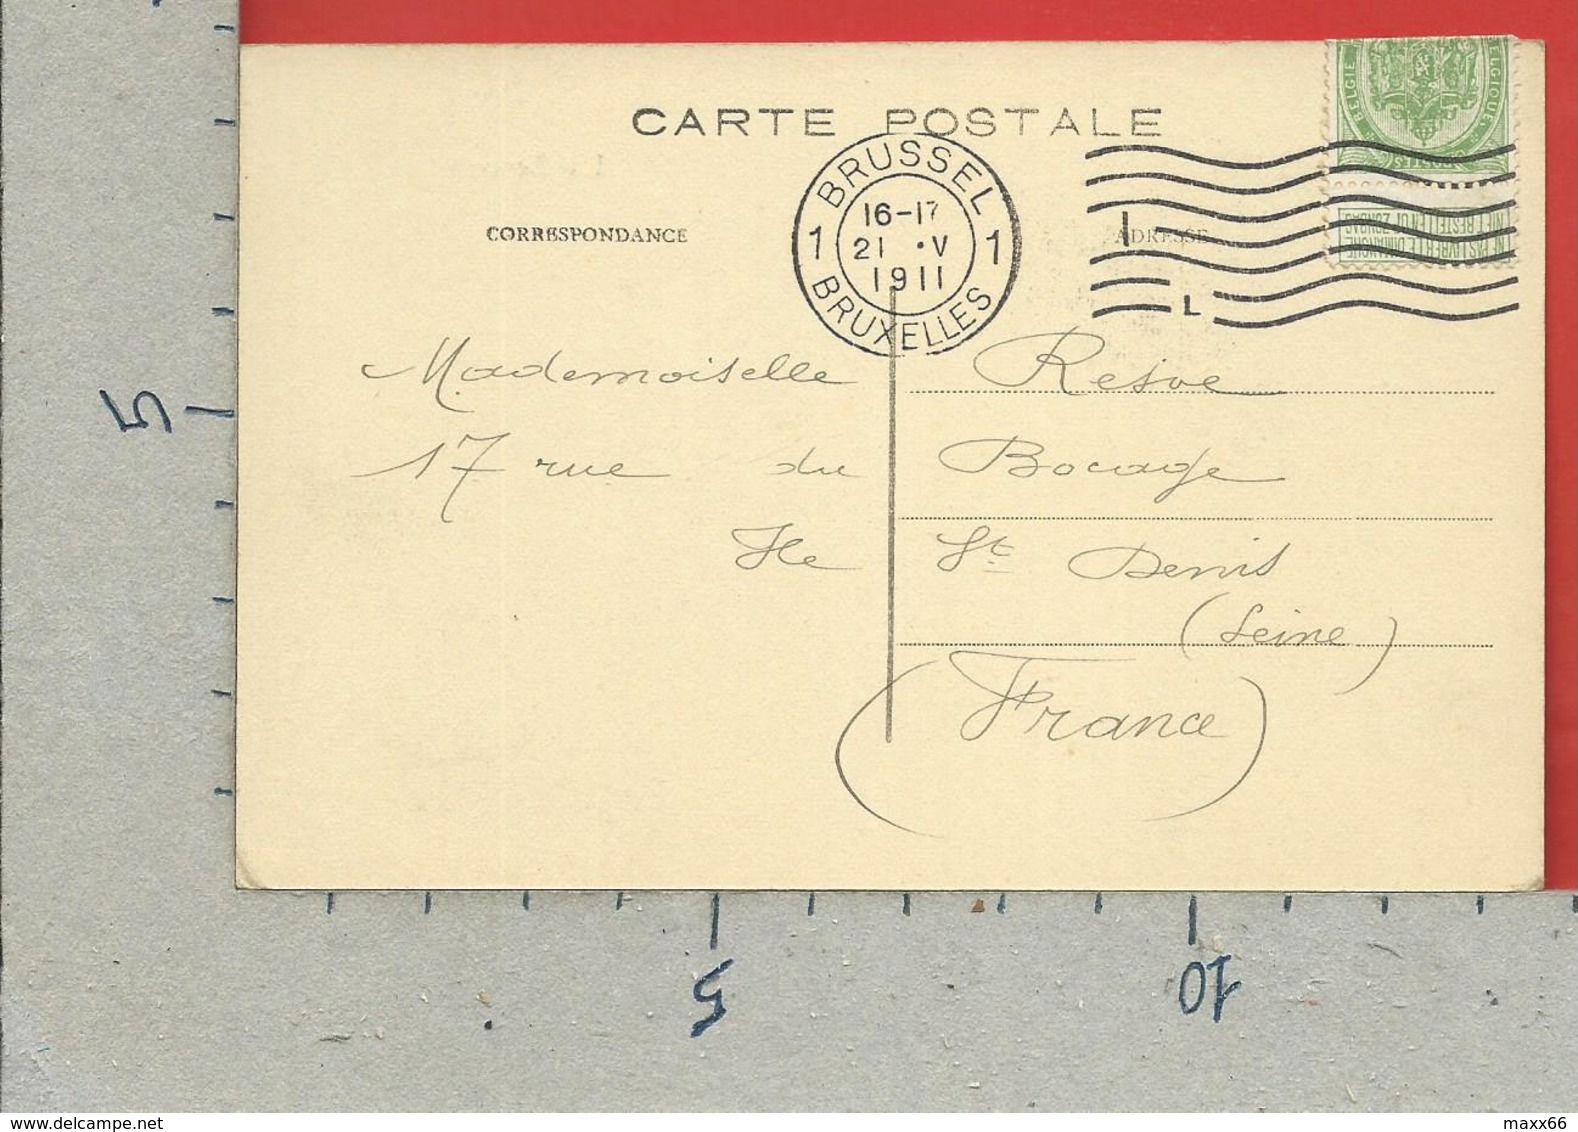 CARTE POSTALE
BRUSSEL
16-17
1 21 ·V 1
1911
BRUXELLES
BELGIE
BELGIQUE
POSTES
NE PAS LIVRER LE DIMANCHE
NIET BESTELLEN OP ZONDAG
CORRESPONDANCE
ADRESSE
I
L
Mademoiselle Resve
17 rue du Bocage
Ile St Denis
(Seine)
(France)
5
5
10
www.delcampe.net
maxx66